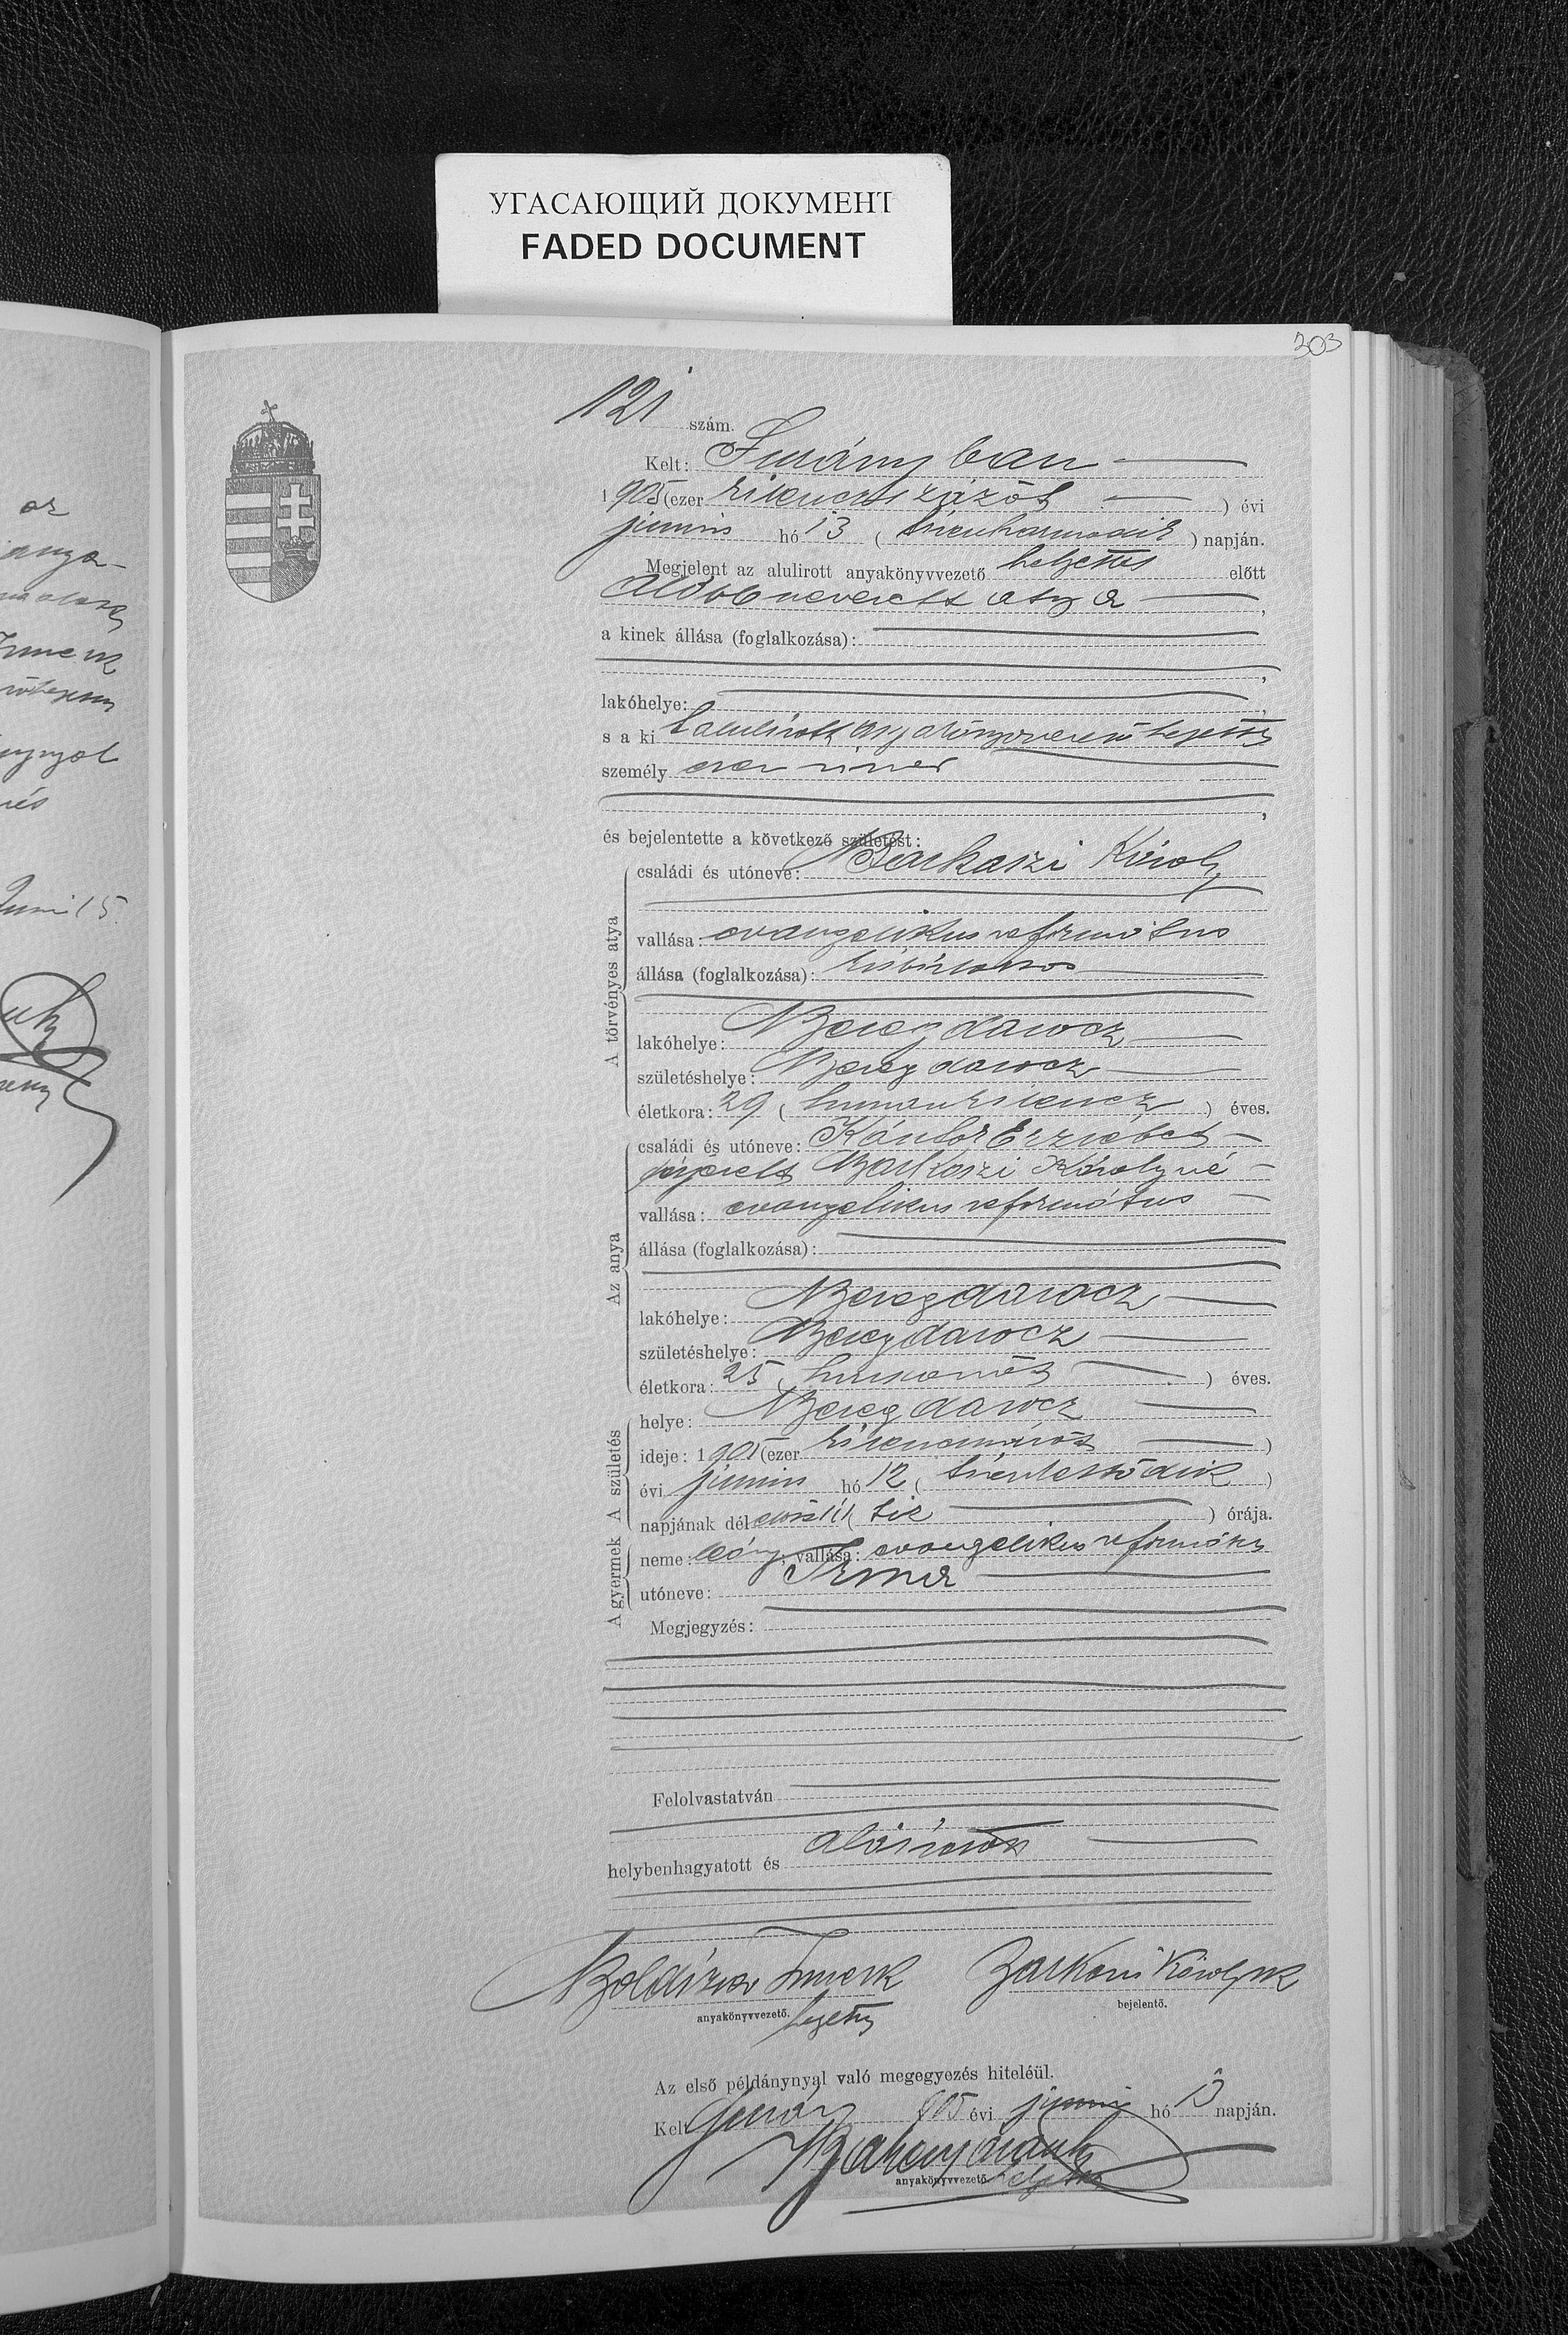 УГАСАЮЩИЙ ДОКУМЕНТ
FADED DOCUMENT
303
121 szám.
Kelt: Surányban
1905 (ezer kilenczszázöt) évi
junius hó 13 (tizenharmadik) napján.
Megjelent az alulirott anyakönyvvezető helyettes előtt
alább nevezett atya,
a kinek állása (foglalkozása):
lakóhelye:
s a ki alulirott anyakönyvvezető helyettes
személy esen ismer
és bejelentette a következő születést:
A törvényes atya
családi és utóneve: Barkaszi Károly
vallása: evangelikus református
állása (foglalkozása): kisbirtokos
lakóhelye: Beregdarocz
születéshelye: Beregdarocz
életkora: 29 (huszonkilencz) éves.
Az anya
családi és utóneve: Kántor Erzsébet
férjezett Barkaszi Károlyné
vallása: evangelikus református
állása (foglalkozása):
lakóhelye: Beregdarocz
születéshelye: Beregdarocz
életkora: 25 (huszonöt) éves.
A születés
helye: Beregdarocz
ideje: 1905 (ezer kilenczszázöt)
évi junius hó 12 (tizenkettődik)
napjának dél előtti (tiz) órája.
A gyermek
neme: leány; vallása: evangelikus református
utóneve: Irma
Megjegyzés:
Felolvastatván
helybenhagyatott és aláiratott
Boldizsár Imre k
Barkaszi Károly sk
anyakönyvvezető. helyettes
bejelentő.
Az első példánynyal való megegyezés hiteléül.
Kelt Surány 905 évi juni hó 13 napján.
anyakönyvvezető. helyettes
az
anya
Imre sk
Juni 15.